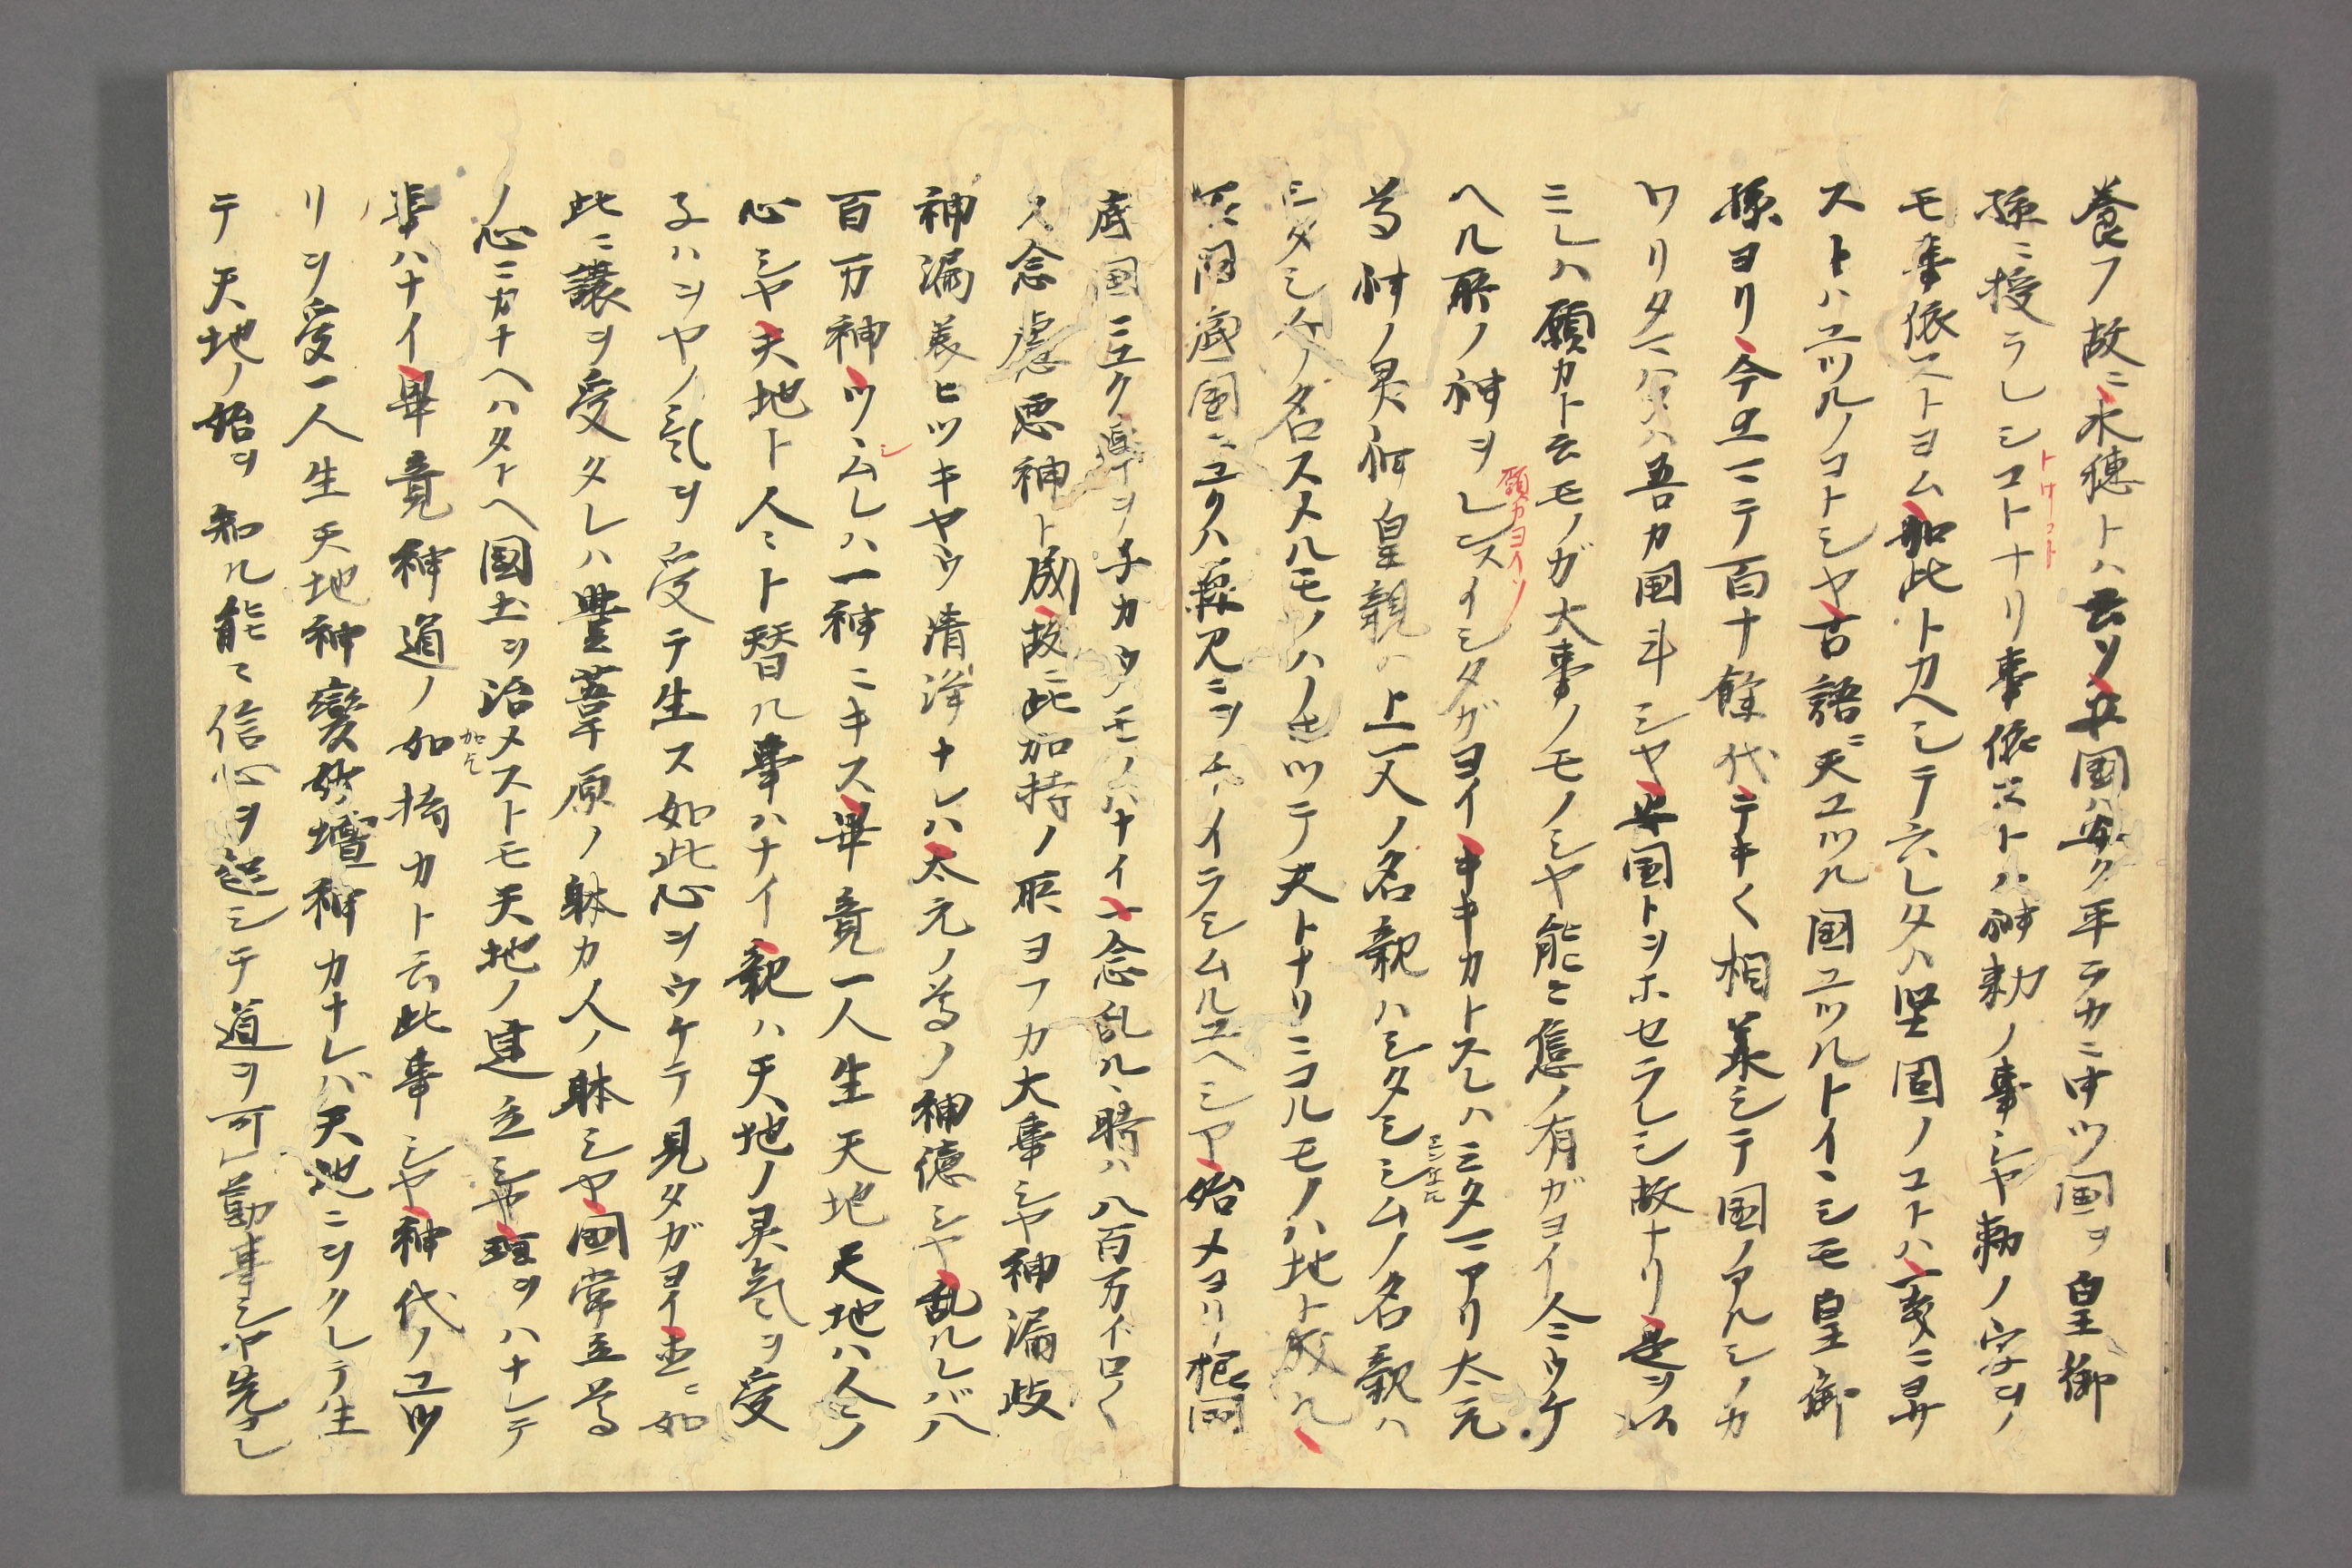 養フ故ニ水穂トハ云ソ安国ハ安ク平ラカニ中ツ国ヲ皇御
孫ニ授ラレシコトナリ事依ストハ神勅ノ事シヤ勅ノ字ヲ
モ事依ストヨム如此トカヘシテ云レタハ堅固ノコトハ変ニヨサ
ストハユツルノコトシヤ古語ニ天ユツル国ユツルトイヽシモ皇御
孫ヨリ今上マテ百十余代テキく相兼シテ国ノアルシノカ
ワリタマハヌハ吾カ国斗シヤ安国トヲホセラレシ故ナリ是ヲ以
ミレハ願カト云モノガ大事ノモノシヤ能々信ノ有ガヨイ今ニウケ
願カヨイソ
ヘル所ノ神ヲレスイシタガヨイキキカトスレハミタマアリ太元
尊神ノ霊神皇親ハ上一人ノ名親ハシタシムノ名親ハ
シタシケノ名スメルモノハノホツテ天トナリニコルモノハ地ト成ル
底国ニユクハ
始メヨリ根国
底国ニユク事ヲ
カウノモノハナイ一念乱ル時ハ八百万イロく
ノ念慮悪神ト成故ニ此加持ノ所ヨフカ大事シヤ神漏岐
神漏美ヒツキヤウ清浄ナレハ太元ノ尊ノ神徳シヤ乱ルレバ八
百万神ツヽムレハ一神ニキス畢竟一人生天地天地ハ人々ノ
心シヤ天地ト人々ト替ル事ハナイ親ハ天地ノ霊気ヲ受
子ハヲヤノ気ヲ受テ生ス如此心ヲウケテ見タガヨイ
此ニ譲ヲ受タレハ豊葦原ノ躰カ人ノ躰シヤ国常立尊
ノ心ニカナヘハタトヘ国土ヲ治メストモ天地ノ建立シヤ理ヲハナレテ
事ハナイ畢竟神道ノ加持カト云此事シヤ神代ノユツ
リヲ受一人生天地神変妙壇神カナレバ天地ニヲクレテ生
テ天地ノ始ヲ知ル能々信心ヲ起シテ道ヲ可勤事シヤ先コレ